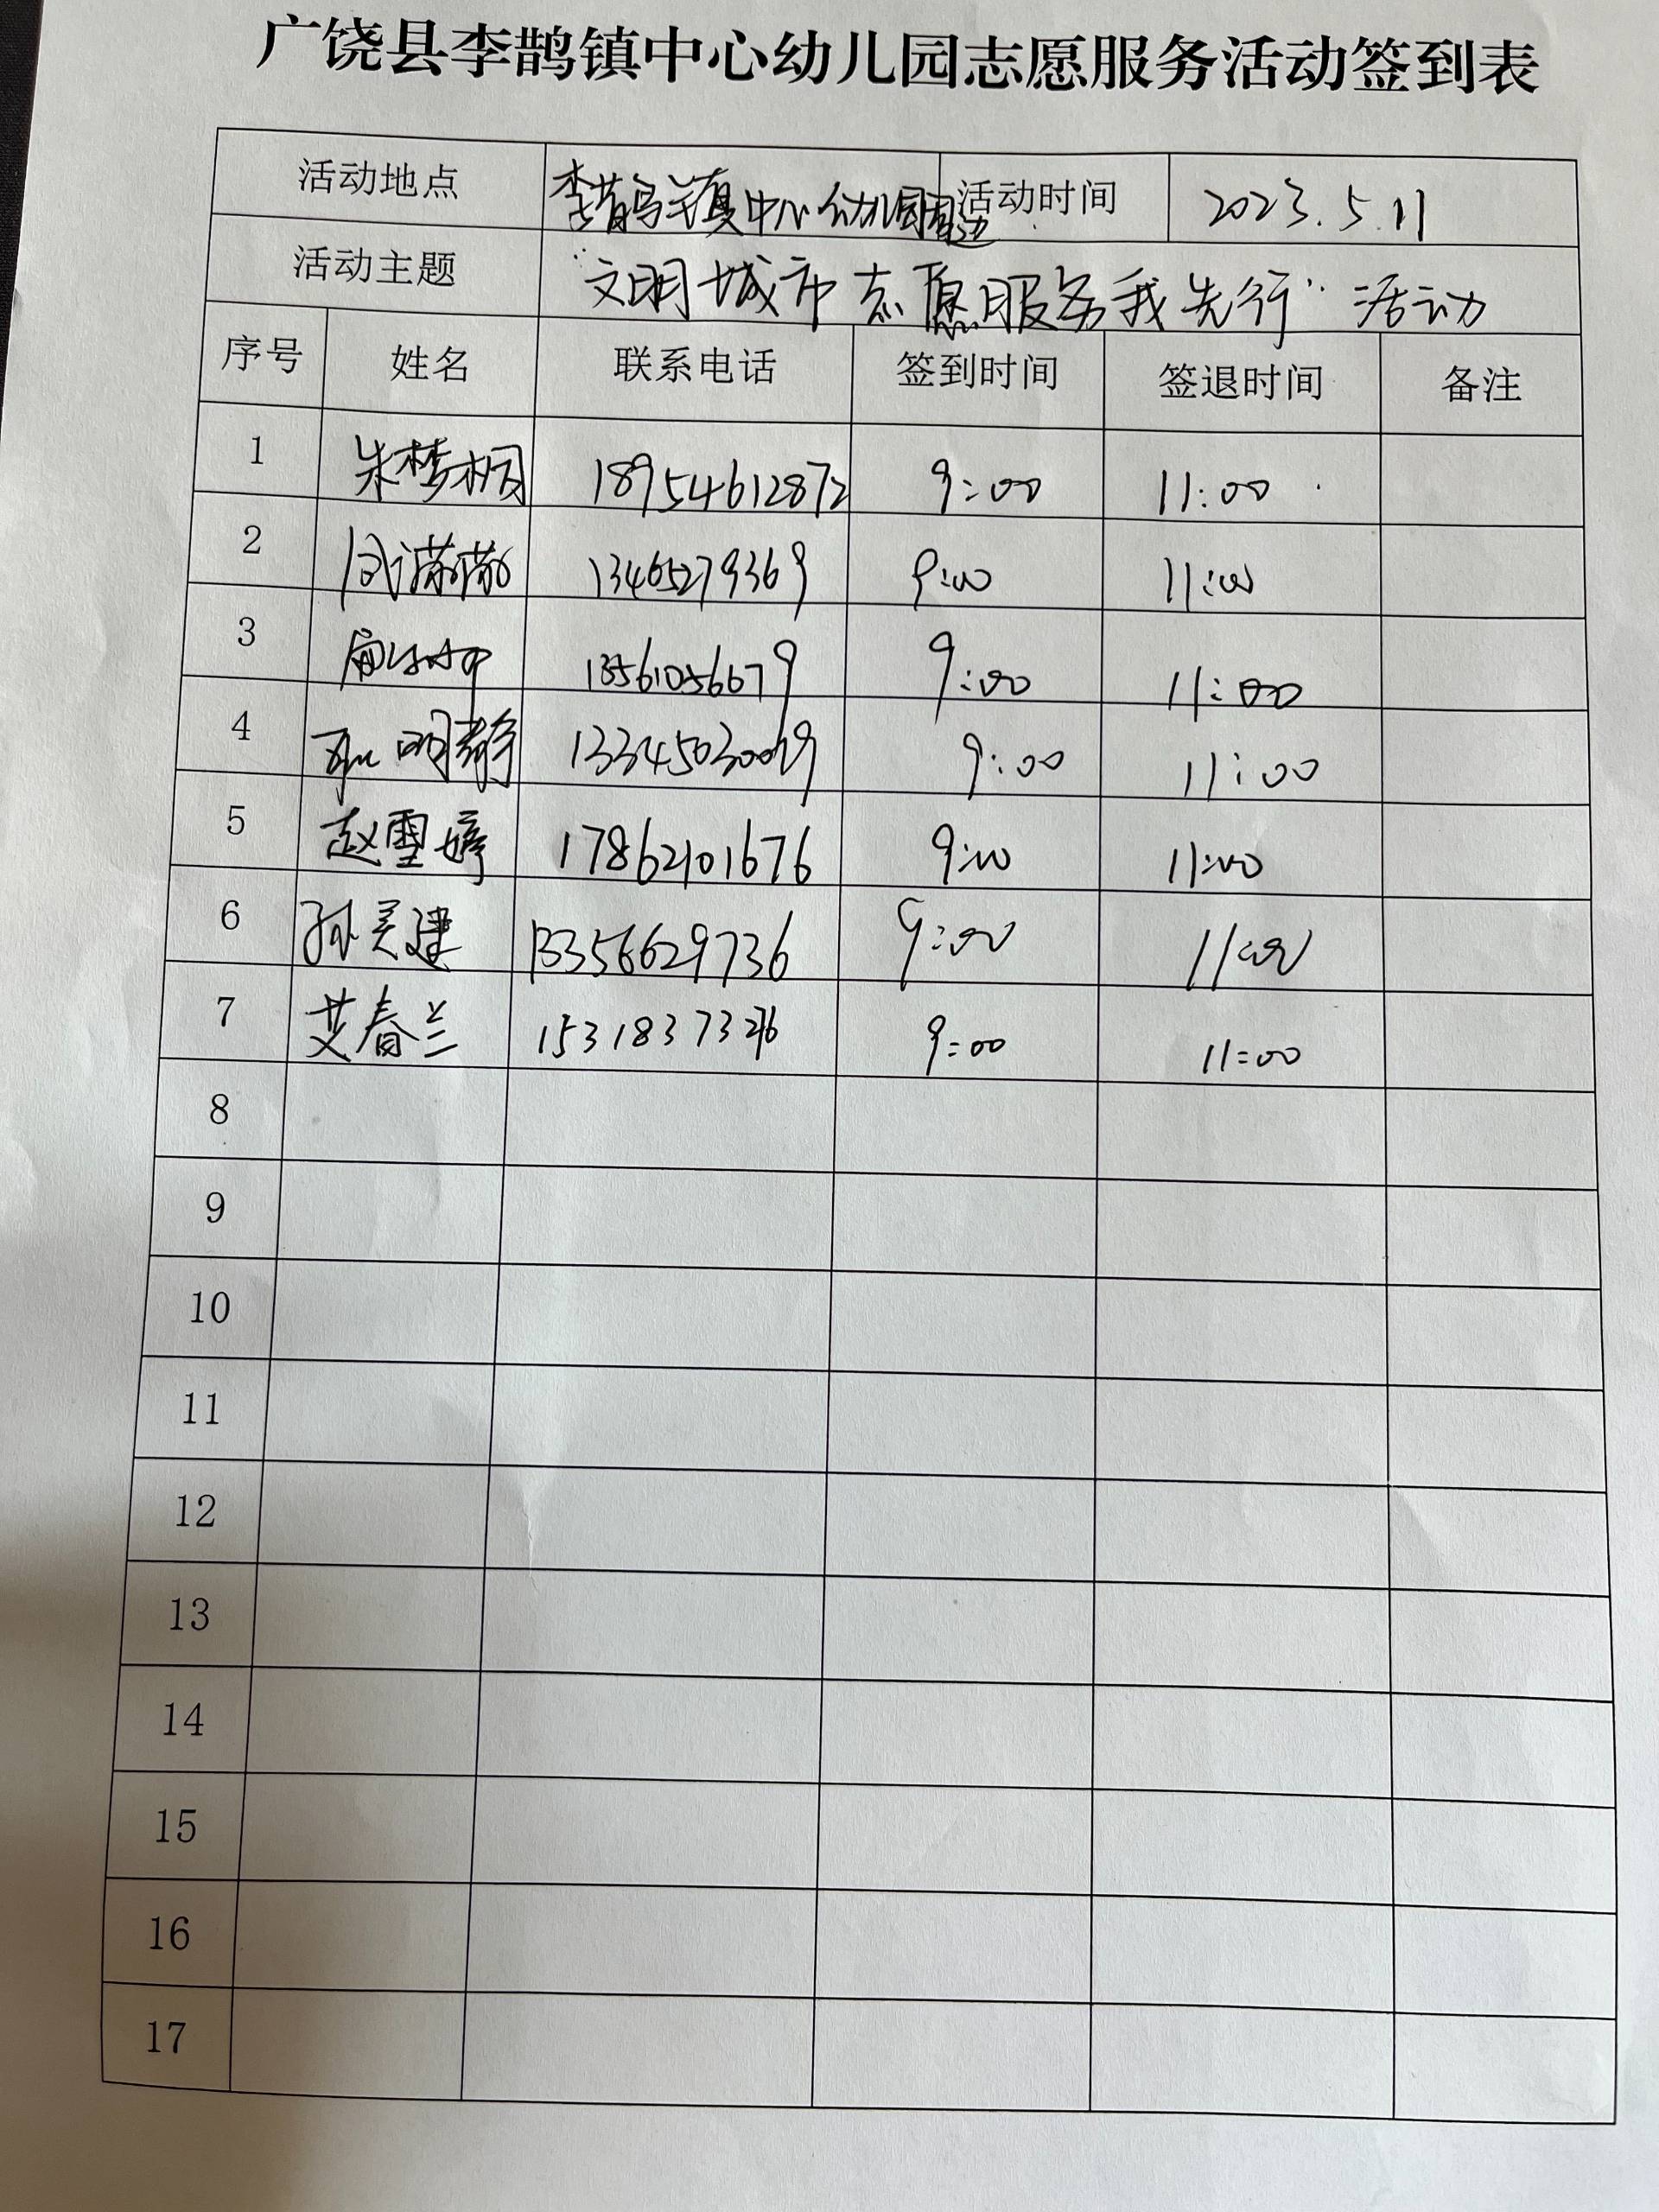 广饶县李鹊镇中心幼儿园志愿服务活动签到表
活动地点 李鹊镇中心幼儿园周边 活动时间 2023.5.11
活动主题 “文明城市志愿服务我先行”活动
序号 姓名 联系电话 签到时间 签退时间 备注
1 朱梦桐 18954612872 9:00 11:00
2 13465279369 9:00 11:00
3 13561056679 9:00 11:00
4 耿明静 13345030069 9:00 11:00
5 赵雪婷 17862101676 9:00 11:00
6 孙美建 13356629736 9:00 11:00
7 艾春兰 9:00 11:00
8
9
10
11
12
13
14
15
16
17